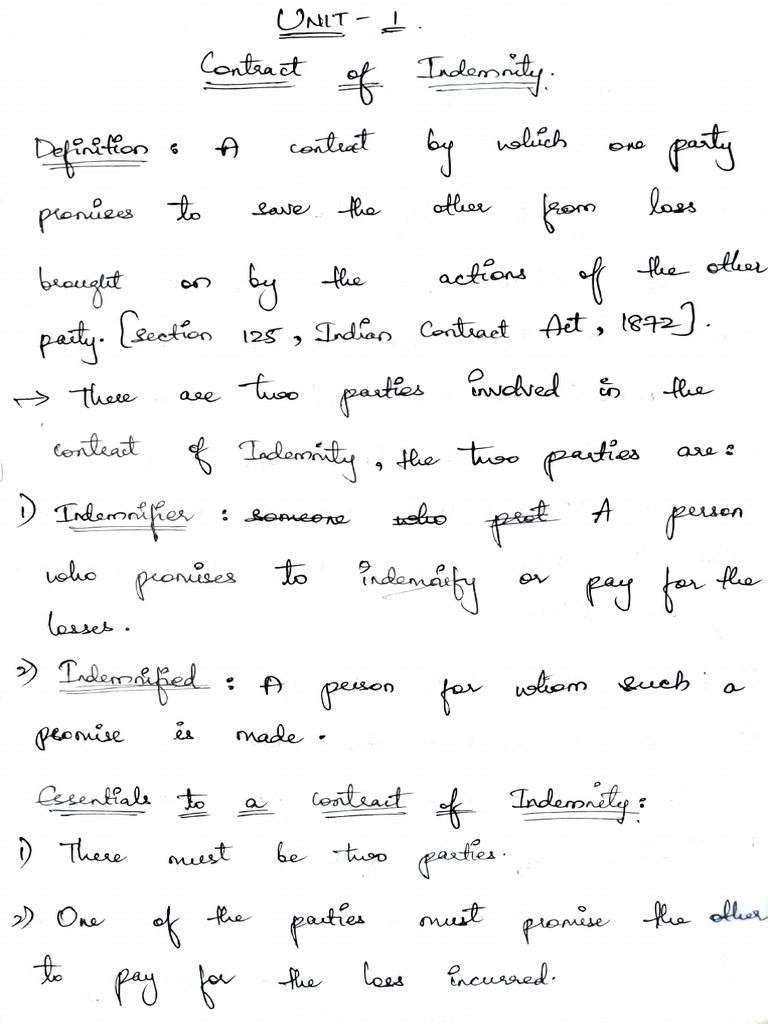 UNIT - 1.
Contract of Indemnity.
Definition : A contract by which one party
promises to save the other from loss
brought on by the actions of the other
party. [Section 125, Indian Contract Act, 1872].
↔ There are two parties involved in the
contract of Indemnity, the two parties are:
1) Indemnifier : someone who prot A person
who promises to indemnify or pay for the
losses.
2) Indemnified : A person for whom such a
promise is made.
Essentials to a contract of Indemnity:
1) There must be two parties.
2) One of the parties must promise the other
to pay for the loss incurred.